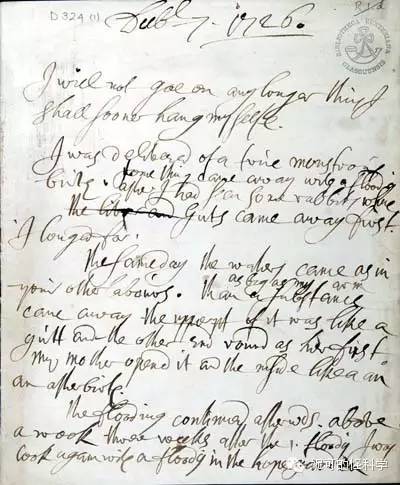 D 324 (1)
Decbr 7. 1726.
BIBLIOTHECA HUNTERIANA
GLASGUENSIS
I will not goe on any longer thus I
shall sooner hang my selfe.
I was delivered of a true monstrous
birth. some thing came away with a flooding
after I had seen some rabbits
the guts came away first.
I longed for.
The same day the waters came as in
your other labours. Then a substance
as big as my arm
came away the uppermost of it was like a
gutt and the other end round as her first
my mother opend it and the inside like a in
an afterbirth.
The flooding continued afterwds. above
a week three weeks after the 1. floody I was
took again with a floody in the hope garden
河的怪科学